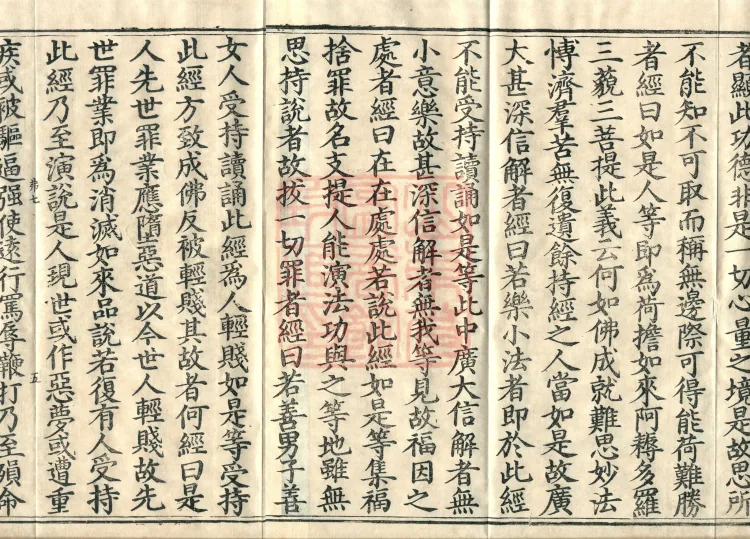 者顯此功德非是一切心量之境是故思所
不能知不可取而稱無邊際可得能荷難勝
者經曰如是人等即為荷擔如來阿耨多羅
三藐三菩提此義云何如佛成就難思妙法
愽濟羣苦無復遺餘持經之人當如是故廣
大甚深信解者經曰若樂小法者即於此經
不能受持讀誦如是等此中廣大信解者無
小意樂故甚深信解者無我等見故福因之
處者經曰在在處處若說此經如是等集福
捨罪故名支提人能演法功與之等地雖無
思持說者故拔一切罪者經曰若善男子善
女人受持讀誦此經為人輕賤如是等受持
此經方致成佛反被輕賤其故者何經曰是
人先世罪業應墮惡道以今世人輕賤故先
世罪業即為消滅如來品說若復有人受持
此經乃至演說是人現世或作惡夢或遭重
弟七
五
疾或被驅逼强使遠行罵辱鞭打乃至殞命